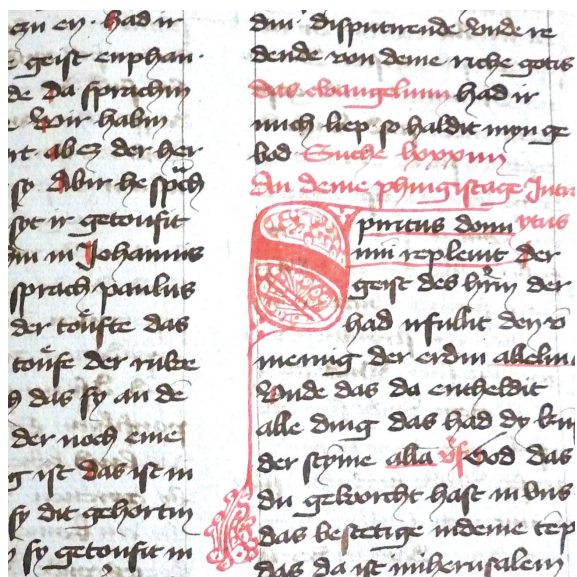 czu en · had ir
geist enphan ·
de Da sprachin
Wir habin
rt aber der her
sy Abir he spch
syt ir getoufit
in Johannis
sprach paulus
der toufte das
toufe der ruwe
das sy an de
der noch eme
ist Das ist in
sy dit gehortin
sy getoufit in
din · disputirende vnde re
dende von deme riche gotis
das ewangelium had ir
mich liep so haldit myn ge
bod Suche lxxxiiii
An deme phingistage Intr
ytus
Spiritus domi
nini repleuit Der
geist des hrin der
had irfullit den
mening der erdin allelu
Vnde das da entheldit
alle ding das had dy kun
der styme alla vs God das
du geworcht hast in vns
das bestetige in deme tep
das da ist in iherusalem